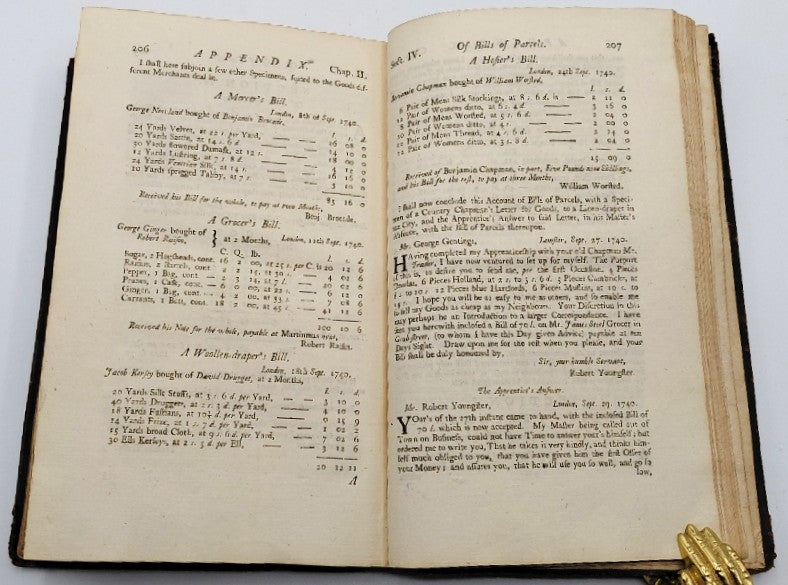 206 APPENDIX. Chap. II.
I shall here subjoin a few other Specimens, suited to the Goods dif-
ferent Merchants deal in.
A Mercer's Bill.
London, 8th of Sept. 1740.
George Norland bought of Benjamin Brocade,
l. s. d.
24 Yards Velvet, at 22 s. per Yard, — — 26 08 0
20 Yards Sattin, at 14 s. 6 d. — — 14 10 0
30 Yards flowered Damask, at 12 s. — — 18 00 0
12 Yards Lustring, at 7 s. 8 d. — — 4 12 0
24 Yards Venetian Silk, at 14 s. — — 16 16 0
10 Yards sprigged Tabby, at 7 s. — — 3 10 0
83 16 0
Received his Bill for the whole, to pay at two Months,
Benj. Brocade.
A Grocer's Bill.
George Ginger bought of
Robert Raisin, } at 2 Months, London, 12th Sept. 1740.
C. Q. lb. l. s. d.
Sugar, 2 Hogsheads, cont. 16 2 00, at 25 s. per C. is 20 12 6
Raisins, 2 Barrels, cont.
Pepper, 1 Bag, cont.
Prunes, 1 Cask, cont.
Ginger, 1 Bag, cont.
Currants, 1 Butt, cont. 18 2 00, at 45 s. — 41 12 6
100 10 6
Received his Note for the whole, payable at Martinmas next,
Robert Raisin.
A Woollen-draper's Bill.
London, 18th Sept. 1740.
Jacob Kersey bought of Daniel Drugget, at 2 Months,
l. s. d.
20 Yards Silk Stuffs, at 3 s. 6 d. per Yard, — 3 10 0
40 Yards Druggets, at 2 s. 3 d. per Yard, — 4 10 0
18 Yards Fustians, at 10½ d. per Yard, — 0 15 9
14 Yards Frize, at 1 s. 7 d. per Yard, — 1 02 2
15 Yards broad Cloth, at 9 s. 6 d. per Yard, — 7 02 6
30 Ells Kerseys, at 2 s. 5 d. per Ell, — 3 12 6
20 12 11
A
Sect. IV. Of Bills of Parcels. 207
A Hosier's Bill.
London, 24th Sept. 1740.
Benjamin Chapman bought of William Worsted,
l. s. d.
6 Pair of Mens Silk Stockings, at 8 s. 6 d. is — 2 11 0
12 Pair of Womens ditto, at 6 s. 4 d — 3 16 0
8 Pair of Mens Worsted, at 5 s. 6 d. — 2 04 0
10 Pair of Womens ditto, at 4 s. — 2 00 0
Pair of Mens Thread, at 4 s. 6 d. — 2 14 0
12 Pair of Womens ditto, at 3 s. 8 d. — 2 04 0
15 09 0
Received of Benjamin Chapman, in part, Five Pounds nine Shillings,
and his Bill for the rest, to pay at three Months,
William Worsted.
I shall now conclude this Account of Bills of Parcels, with a Speci-
men of a Country Chapman's Letter for Goods, to a Linen-draper in
the City, and the Apprentice's Answer to said Letter, in his Master's
Absence, with the Bill of Parcels thereupon.
Mr. George Gentings, Leinster, Sept. 27. 1740.
Having completed my Apprenticeship with your old Chapman Mr.
Trader, I have now ventured to set up for myself. The Purport
of this is, to desire you to send me, per the first Occasion, 4 Pieces
Dowlas, 6 Pieces Holland, at 2 s. to 3 s. 6 d. 5 Pieces Cambricks, at
5 s. to 10 s. 12 Pieces blue Hartfords, 6 Pieces Muslins, at 10 s. to
15 s. I hope you will be as easy to me as others, and so enable me
to sell my Goods as cheap as my Neighbours. Your Discretion in this
may perhaps be an Introduction to a larger Correspondence. I have
sent you herewith included a Bill of 70 l. on Mr. James Steel Grocer in
Grubstreet, (to whom I have this Day given Advice) payable at ten
Days Sight. Draw upon me for the rest when you please, and your
Bill shall be duly honoured by,
Sir, your humble Servant,
Robert Youngster.
The Apprentice's Answer.
Mr. Robert Youngster, London, Sept. 29. 1740.
YOur's of the 27th instant came to hand, with the included Bill of
70 l. which is now accepted. My Master being called out of
Town on Business, could not have Time to answer your's himself; but
ordered me to write you, That he takes it very kindly, and thinks him-
self much obliged to you, that you have given him the first Offer of
your Money; and assures you, that he will use you so well, and go so
low,